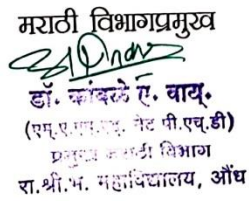 मराठी विभागप्रमुख
डॉ. कांबळे ए. वाय्.
(एम्.ए.एम्.एड्. नेट पी.एच्.डी)
प्रमुख मराठी विभाग
रा.श्री.भ. महाविद्यालय, औंध